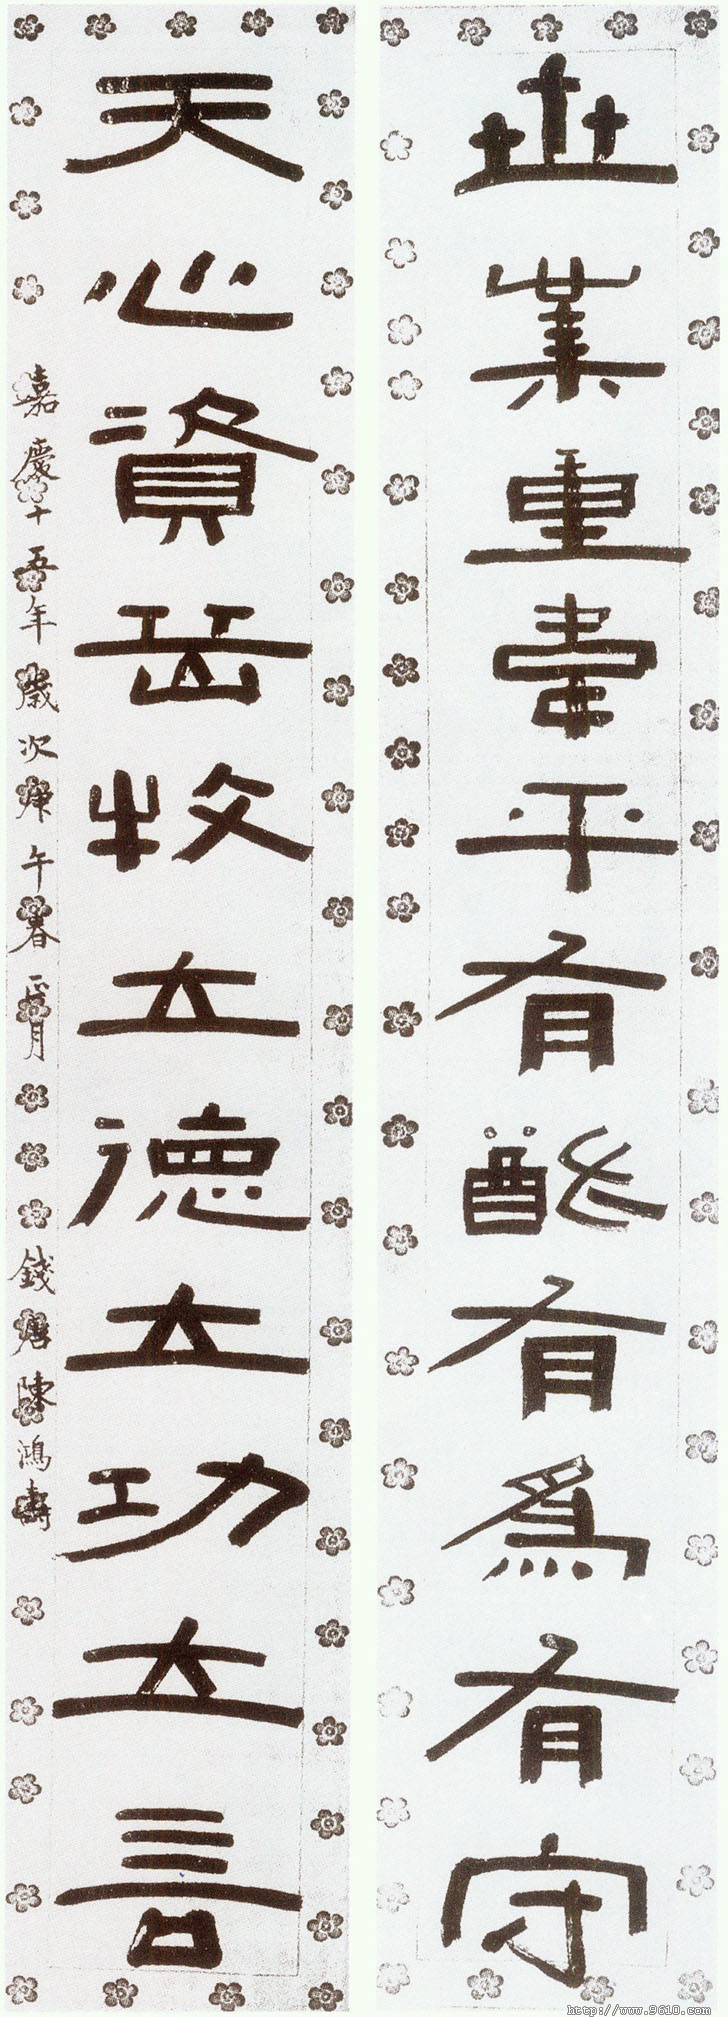 世業重韋平有猷有為有守
天心資岳牧立德立功立言
嘉慶十五年歲次庚午春正月
錢唐陳鴻壽
http://www.9610.com